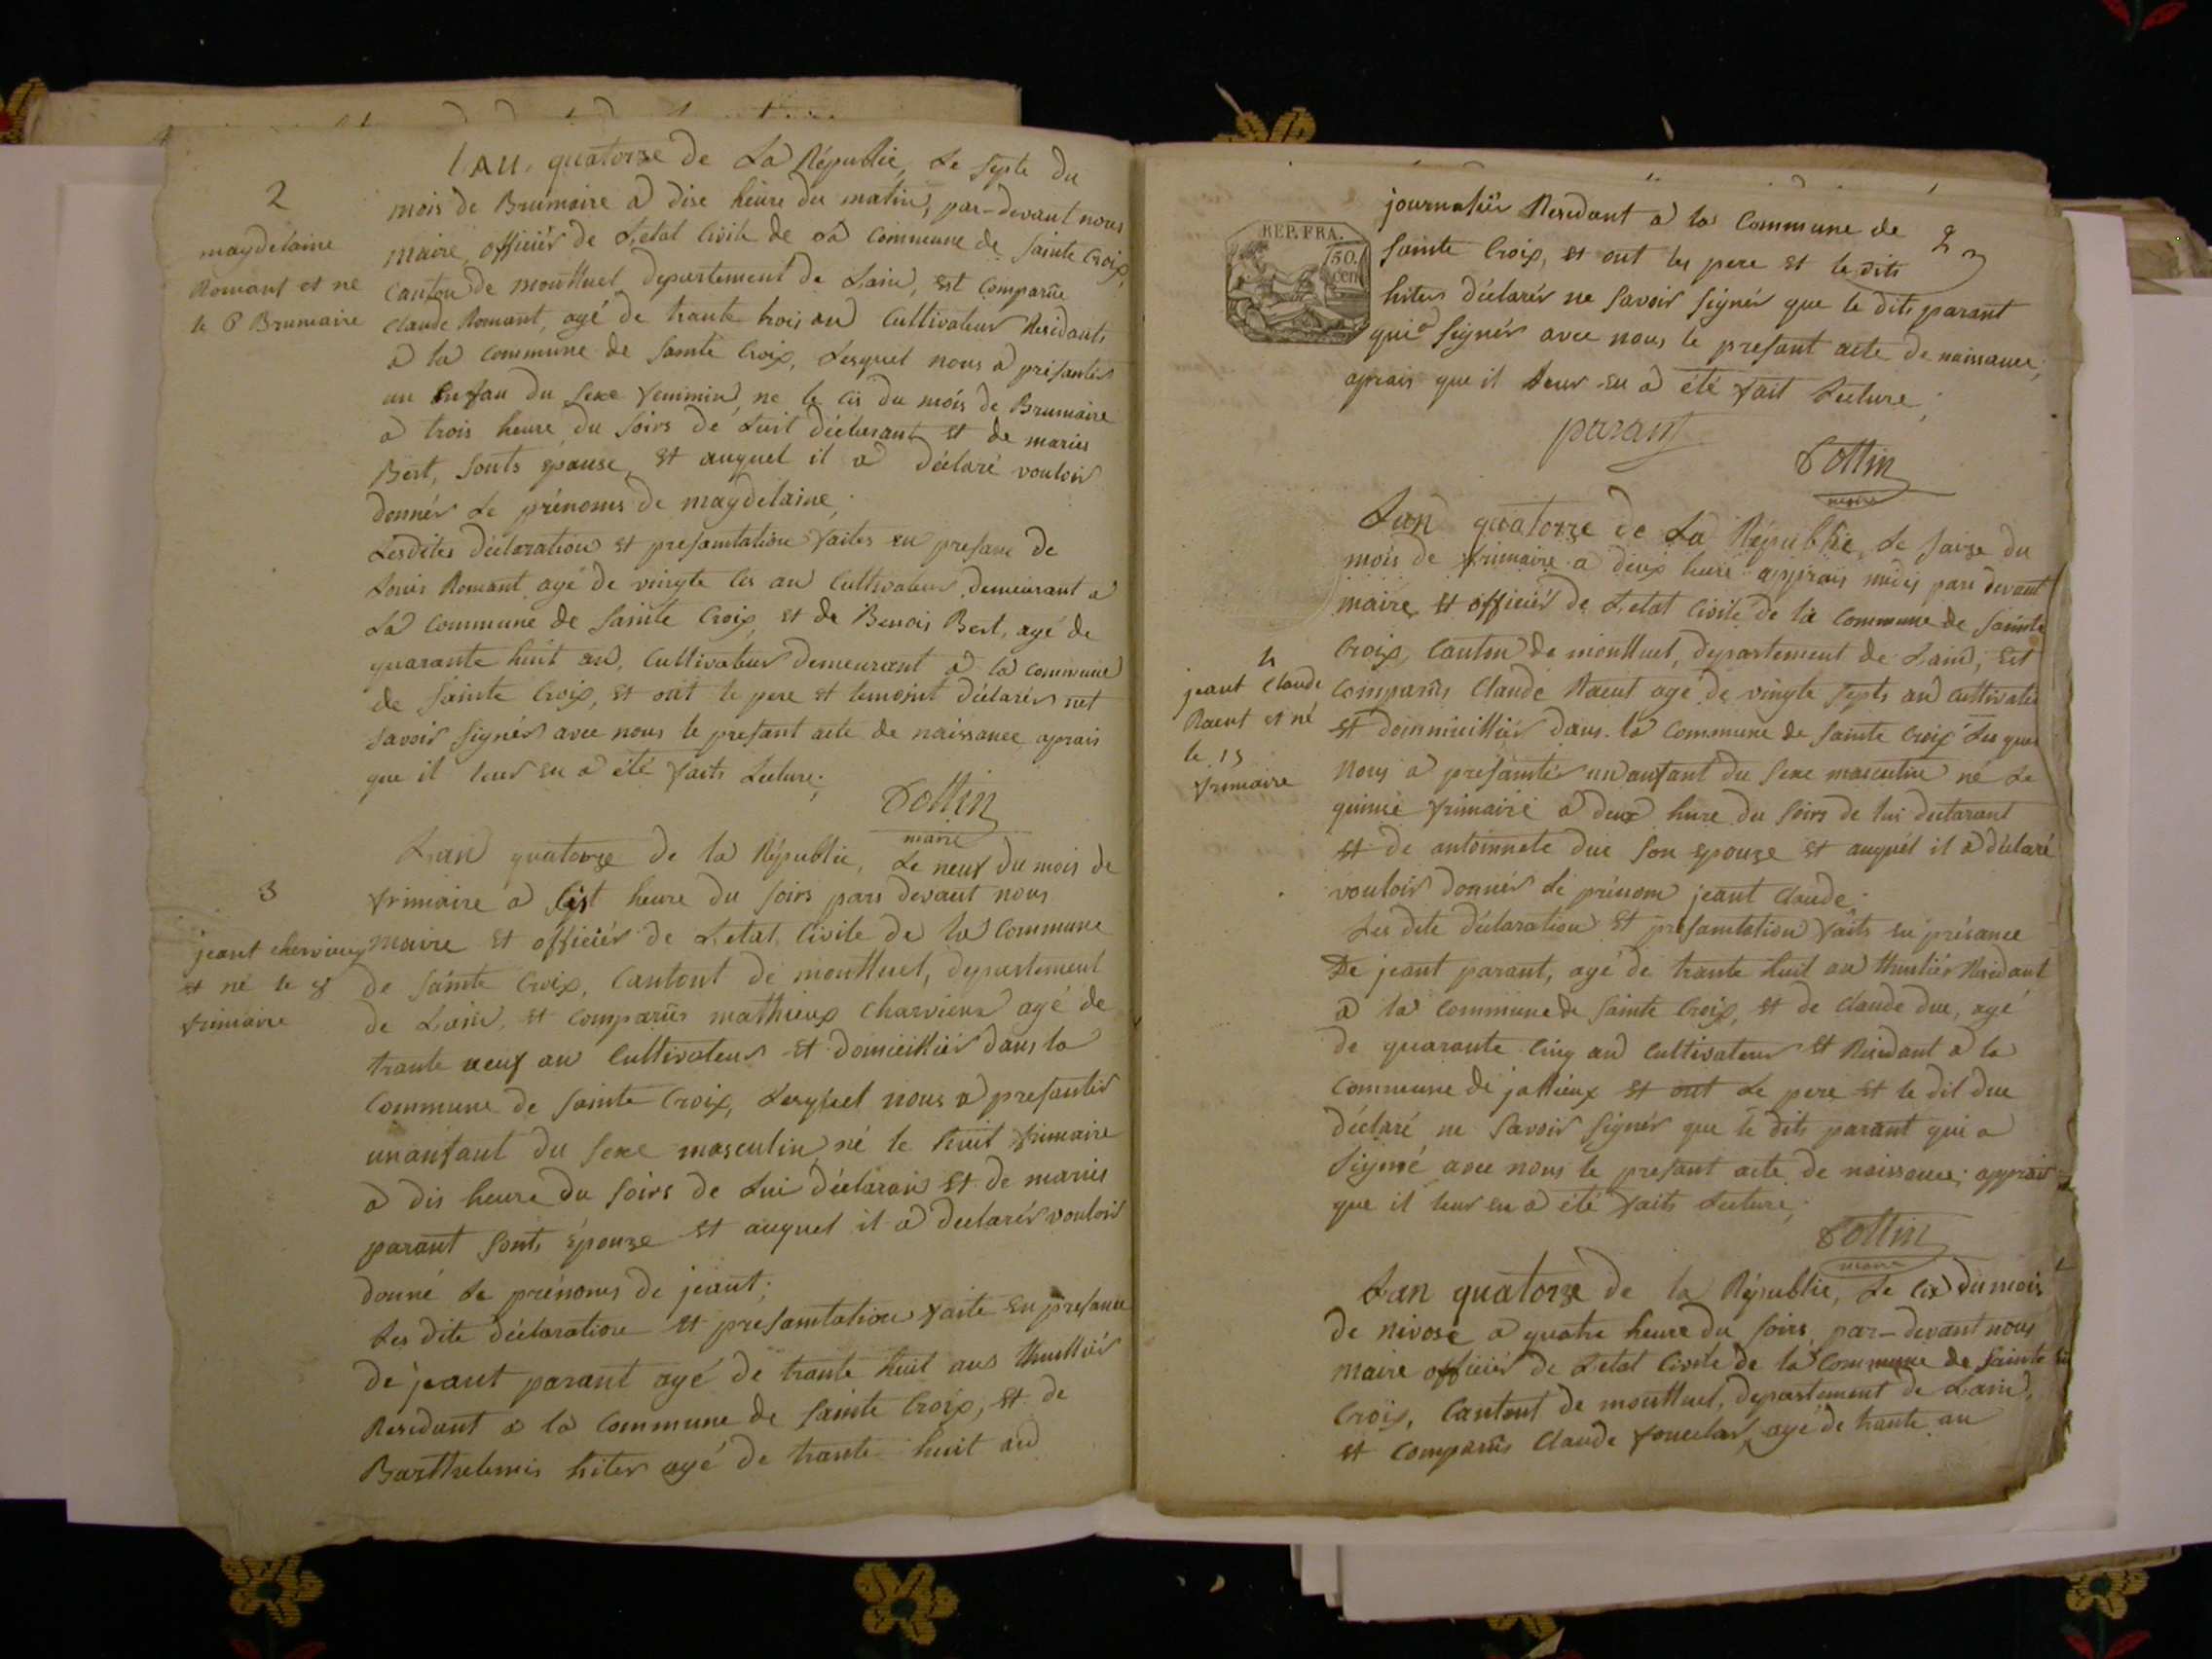 2
magdelaine
Romant et ne
le 6 Brumaire
l'an quatorze de La Républic, Le septe du
mois de Brumaire a dise heure du matin, par-devant nous
maire, officiér de L'etat Civile de La Commune de Sainte Croix,
Canton de montluel departement de Lain, est Comparûe
Claude Romant, agé de trante trois an Cultivateur Residants
a la Commune de Sainte Croix, Lesquel nous a présantér
un Enfan du sexe feminin ne le sis du mois de Brumaire
a trois heure du soirs de Luit déclarant et de maries
Bert, sonts epouse, et auquel il a déclaré vouloir
donnér Le prénoms de magdelaine;
Lesdites déclaration et presantation faites en presanc de
Louis Romant agé de vingte sis an Cultivateur demeurant a
La Commune de Sainte Croix, et de Benois Bert, agé de
quarante huit an, Cultivateur demeurant a la Commune
de Sainte Croix, et ont le pere et temoint déclarér net
savoir signér avec nous le presant acte de naissance aprais
que il leur en a été faits Lecture;
Tottin
maire
3
jeant chervieux
et né le 8
frimaire
L'an quatorze de la Républic, Le neuf du mois de
frimaire a sist heure du soirs pars devant nous
maire et officiér de L'etat Civile de la Commune
de Sainte Croix, Cantont de montluel, departement
de Lain, et Comparûs mathieux Charvieux agé de
trante neuf an Cultivateur et domicilliér dans la
Commune de Sainte Croix, Lesquel nous a presantér
un anfant du sexe masculin né le huit frimaire
a dis heure du soirs de Lui déclaran et de maries
parant sonts épouze et auquel il a declarér vouloir
donné Le prénoms de jeant;
Les dite déclaration et presantation faite en presance
de jeant parant agé de trante huit ans thuilliér
Residant a la Commune de Sainte Croix, et de
Barthelemis hiter agé de trante huit an
REP. FRA.
50.
cen
2
journaliér Residant a la Commune de
Sainte Croix, et ont les pere et le dits
hiter déclarér ne savoir signér que le dits parant
qui a signér avec nous le presant acte de naissance,
aprais que il leur en a été fait Lecture;
parant
Tottin
maire
4
jeant Claude
Racut et né
le 15
frimaire
L'an quatorze de La Républic, Le saize du
mois de frimaire a deux heure apprais midis pars devant
maire et officiér de L'etat Civile de la Commune de Sainte
Croix, Canton de montluel, departement de Lain, est
Comparûs Claude Racut agé de vingte septs an Cultivate
et dommicilliér dans la Commune de Sainte Croix Les quel
nous a presantér un anfant du sexe masculin né Le
quinze frimaire a deux hure du soirs de lui declarant
et de antoinnete duc son epouze et auquél il a déclaré
vouloir donnér Le prénom jeant Claude;
Les dite déclaration et presantation faits en présance
De jeant parant, agé de trante huit an thuiliér Residant
a la Commune de Sainte Croix, et de Claude duc, agé
de quarante cinq an Cultivateur et Residant a la
Commune de jallieux et ont Le pere et le dit duc
déclaré ne savoir signér que le dits parant qui a
signné avec nous le presant acte de naissance; apprais
que il leur en a été faits Lecture;
Tottin
maire
L'an quatorze de la Républic, Le six du mois
de nivose a quatre heure du soirs par-devant nous
maire officiér de L'etat Civile de la Commune de Sainte
Croix, Cantont de montluel, departement de Lain,
et Comparûs Claude agé de trante an